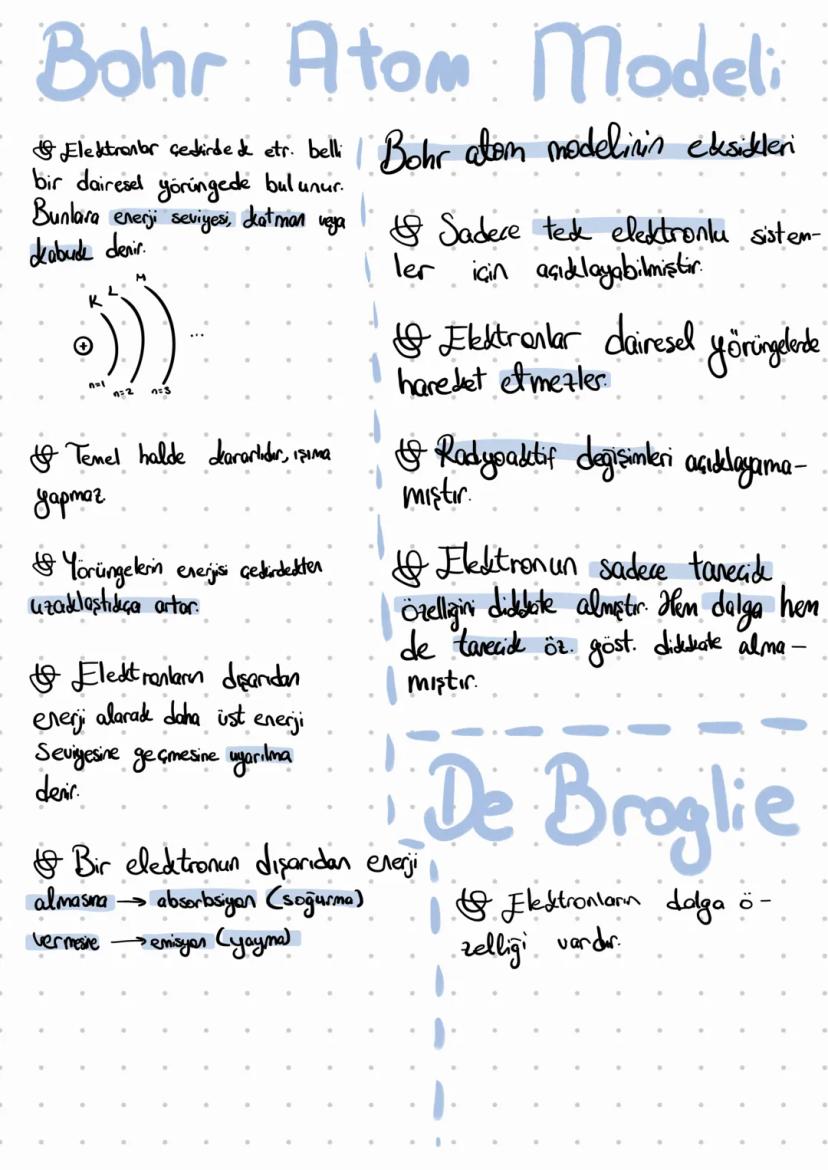 Bohr Atom Modeli
Elektronlar çekirdek etr. belli
bir dairesel yörüngede bulunur.
Bunlara enerji seviyesi, katman veya
kabuk denir.
K L M
+
...
n=1 n=2 n=3
Temel halde kararlıdır, ışıma
yapmaz
Yörüngelerin enerjisi çekirdekten
uzaklaştıkça artar.
Elektronların dışarıdan
enerji alarak daha üst enerji
Seviyesine geçmesine uyarılma
denir.
Bir elektronun dışarıdan enerji
almasına → absorbsiyon (soğurma)
vermesine → emisyon (yayma)
Bohr atom modelinin eksikleri
Sadece tek elektronlu sistem-
ler için açıklayabilmiştir.
Elektronlar dairesel yörüngelerde
hareket etmezler.
Radyoaktif değişimleri açıklayama-
mıştır.
Elektronun sadece tanecik
özelliğini dikkate almıştır. Hem dalga hem
de tanecik öz. göst. dikkate alma-
mıştır.
De Broglie
Elektronların dalga ö-
zelliği vardır.